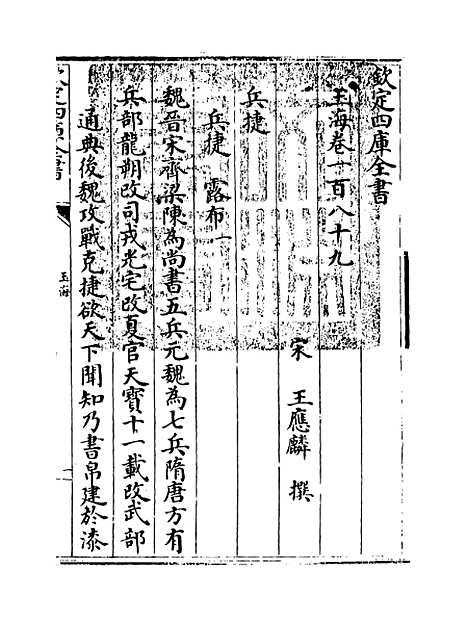 欽定四庫全書
玉海卷一百八十九
宋 王應麟 撰
兵捷
兵捷 露布一
魏晉宋齊梁陳為尚書五兵元魏為七兵隋唐方有
兵部龍朔改司戎光宅改夏官天寶十一載改武部
通典後魏攻戰克捷欲天下聞知乃書帛建於漆
欽定四庫全書
玉海
一